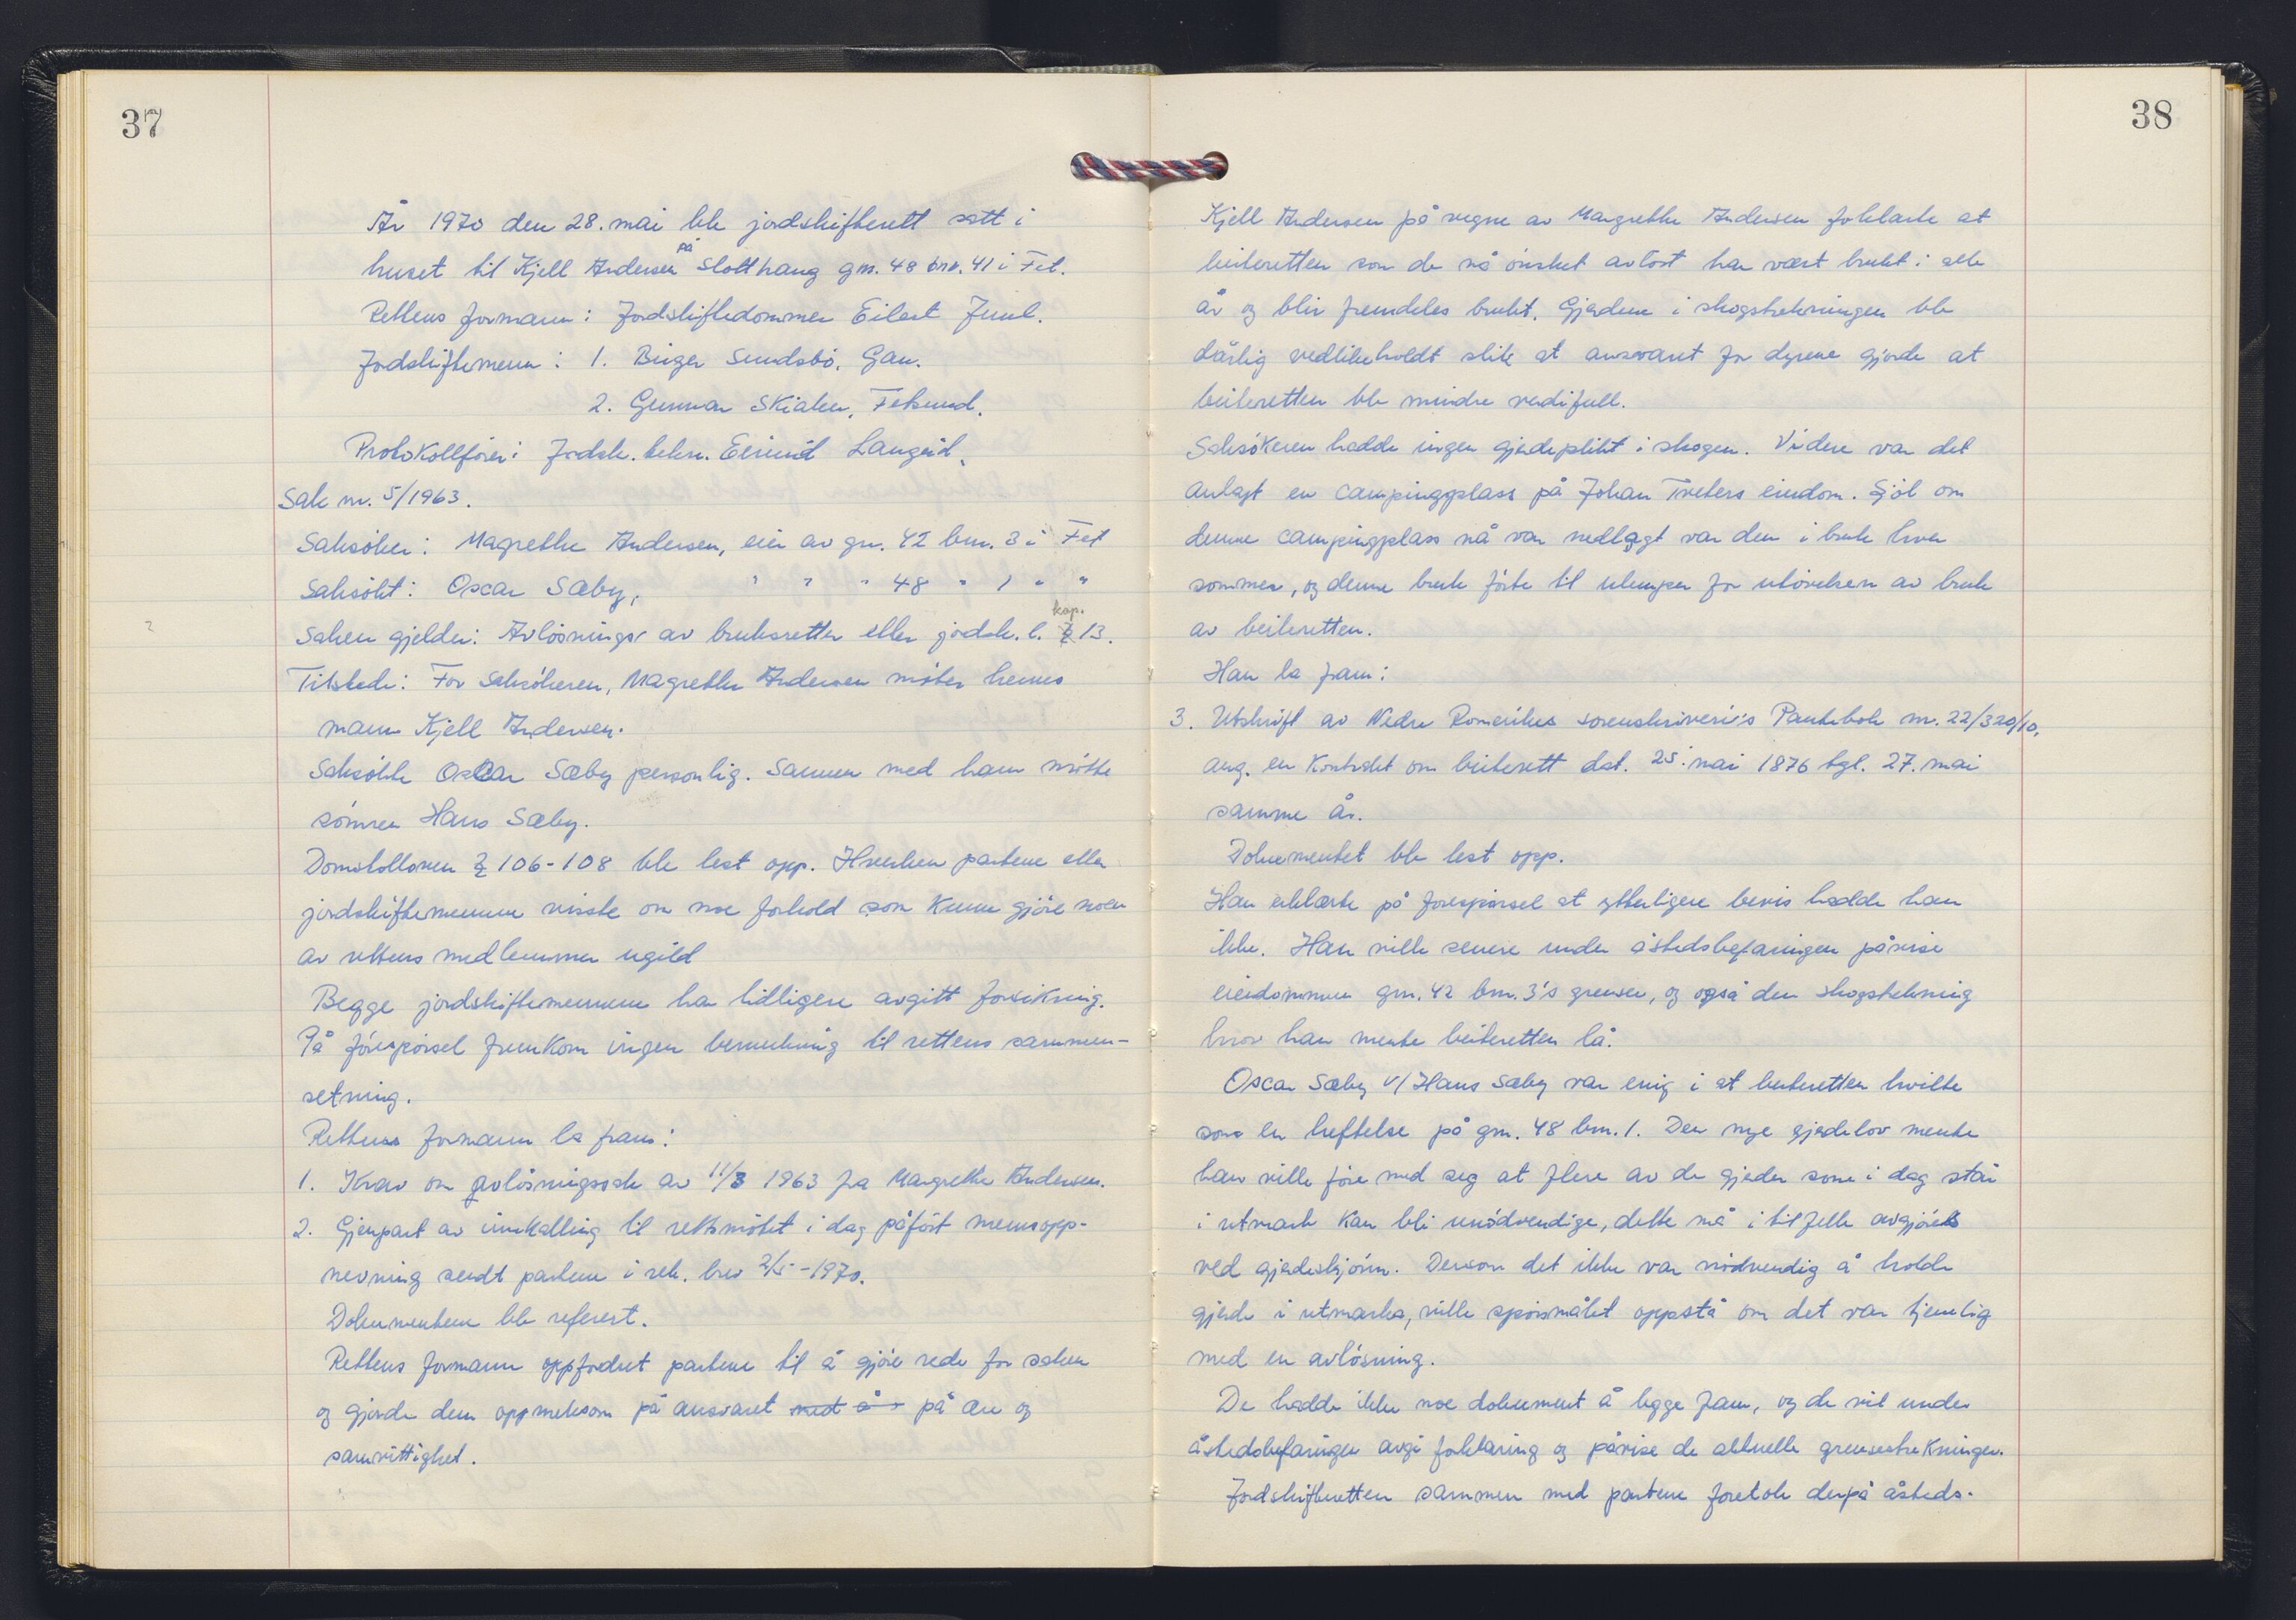 37
År 1970 den 28. mai ble jordskifterett satt i
huset til Kjell Andersen på Slotthaug gnr. 48 bnr. 41 i Fet.
Rettens formann: Jordskiftedommer Eilert Juul.
Jordskiftemenn: 1. Birger Sundsbö, Gan.
2. Gunnar Skiaker, Fetsund.
Protokollförer: Jordsk. Eivind Langeid.
Sak nr. 5/1963.
Saksöker: Magrethe Andersen, eier av gnr. 42 bnr. 3 i Fet
Saksökt: Oscar Sæby, " " " 48 " 1 " "
Saken gjelder: Avlösnings av bruksretter etter jordsk. l. kap. 13.
Tilstede: For saksökeren, Magrethe Andersen möter hennes
mann Kjell Andersen.
Saksökte Oscar Sæby personlig. Sammen med ham mötte
sönnen Hans Sæby.
Domstolloven § 106-108 ble lest opp. Hverken partene eller
jordskiftemennene visste om noe forhold som kunne gjöre noen
av rettens medlemmer ugild
Begge jordskiftemennene har tidligere avgitt forsikring.
På forespörsel fremkom ingen bemerkning til rettens sammen-
setning.
Rettens formann la fram:
1. Krav om avlösningssak av 11/3 1963 fra Margrethe Andersen.
2. Gjenpart av innkalling til rettsmötet i dag påfört mennsopp-
nevning sendt partene i rek. brev 2/5-1970.
Dokumentene ble referert.
Rettens formann oppfordret partene til å gjöre rede for saken
og gjorde dem oppmerksom på ansvaret med å på ære og
samvittighet.
38
Kjell Andersen på vegne av Margrethe Andersen forklarte at
beiteretten som de nå önsket avlöst har vært brukt i alle
år og blir fremdeles brukt. Gjerdene i skogstrekningen ble
dårlig vedlikeholdt slik at ansvaret for dyrene gjorde at
beiteretten ble mindre verdifull.
Saksökeren hadde ingen gjerdeplikt i skogen. Videre var det
anlagt en campingplass på Johan Tveters eiendom. Sjöl om
denne campingplass nå var nedlagt var den i bruk hver
sommer, og denne bruk förte til ulemper for utövelsen av bruk
av beiteretten.
Han la fram:
3. Utskrift av Nedre Romerikes sorenskriveri's Pantebok nr. 22/320/10,
ang. en kontrakt om beiterett dat. 25. mai 1876 tgl. 27. mai
samme år.
Dokumentet ble lest opp.
Han erklærte på forespörsel at ytterligere bevis hadde han
ikke. Han ville senere under åstedsbefaringen påvise
eiendommen gnr. 42 bnr. 3's grenser, og også den skogstrekning
hvor han mente beiteretten lå.
Oscar Sæby v/ Hans Sæby var enig i at beiteretten hvilte
som en heftelse på gnr. 48 bnr. 1. Den nye gjerdelov mente
han ville före med seg at flere av de gjerder som i dag står
i utmark kan bli unödvendige, dette må i tilfelle avgjöres
ved gjerdeskjönn. Dersom det ikke var nödvendig å holde
gjerde i utmarka, ville spörsmålet oppstå om det var tjenlig
med en avlösning.
De hadde ikke noe dokument å legge fram, og de vil under
åstedsbefaringen avgi forklaring og påvise de aktuelle grensestrekninger.
Jordskifteretten sammen med partene foretok derpå åsteds-